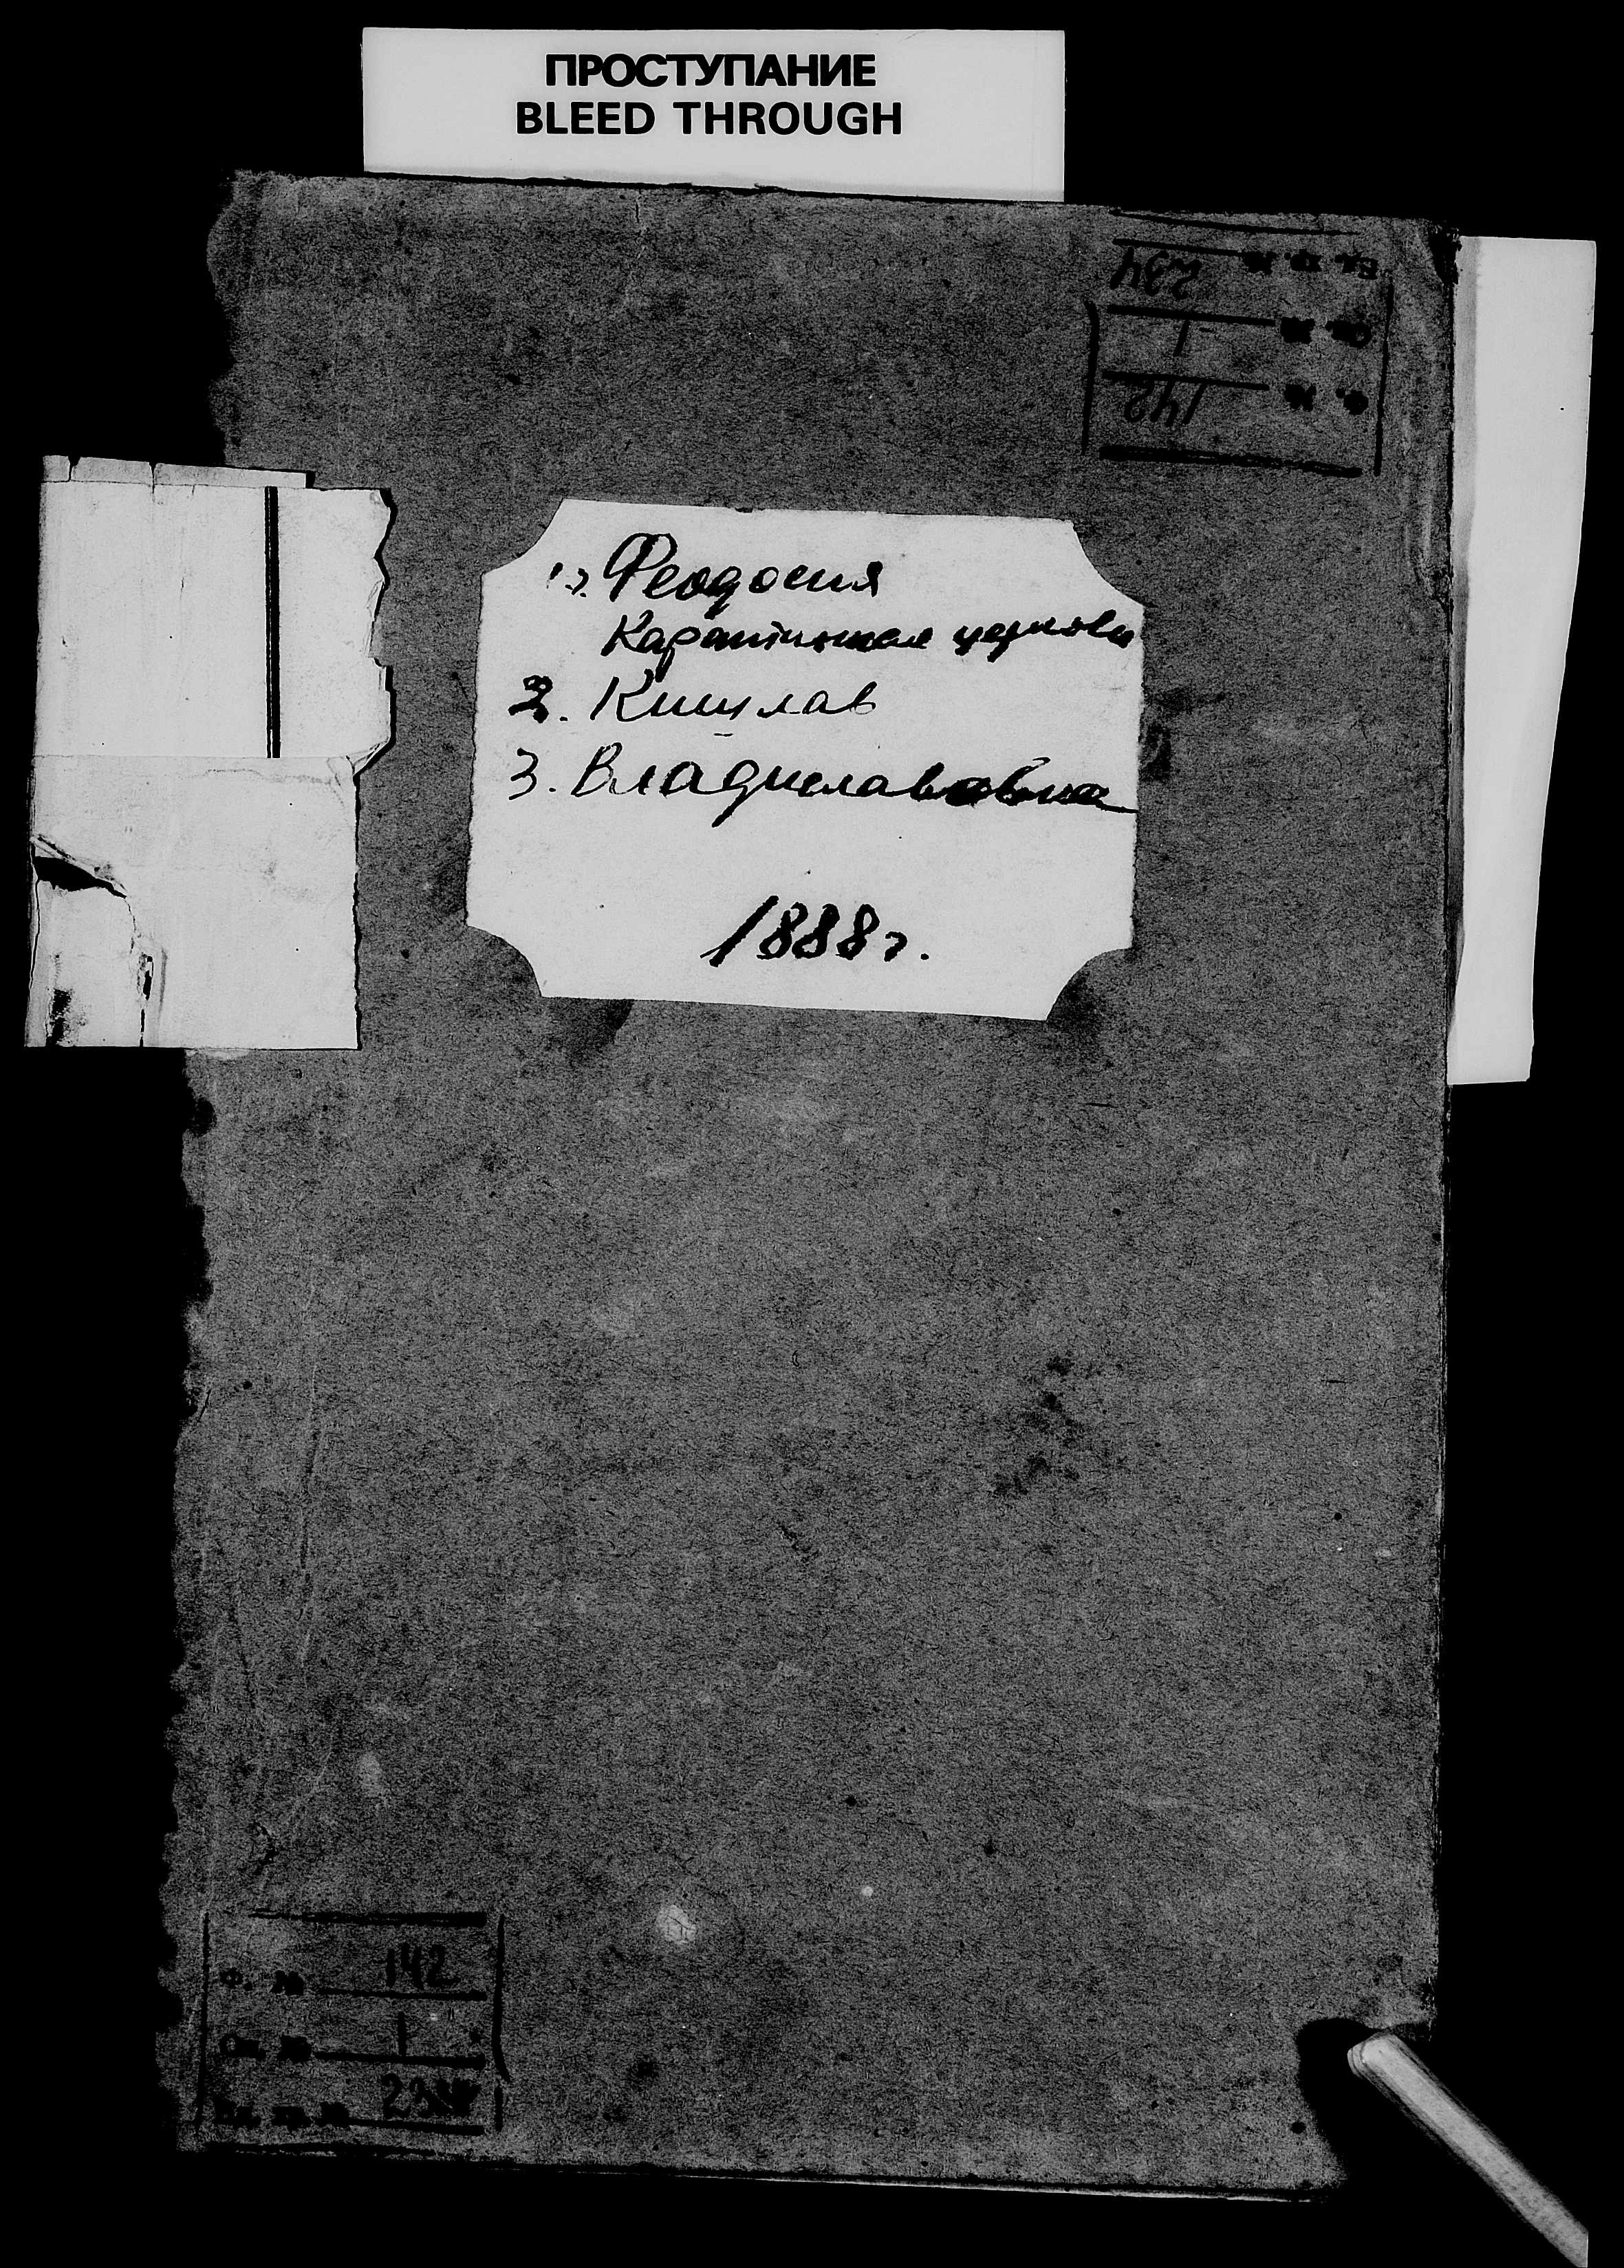 ПРОСТУПАНИЕ
BLEED THROUGH
Ед. хр. № 234
Оп. № 1
Ф. № 142
1). Феодосия
Карантинная церковь
2. Кишлав
3. Владиславовка
1888 г.
Ф. № 142
Оп. № 1
Ед. хр. № 234